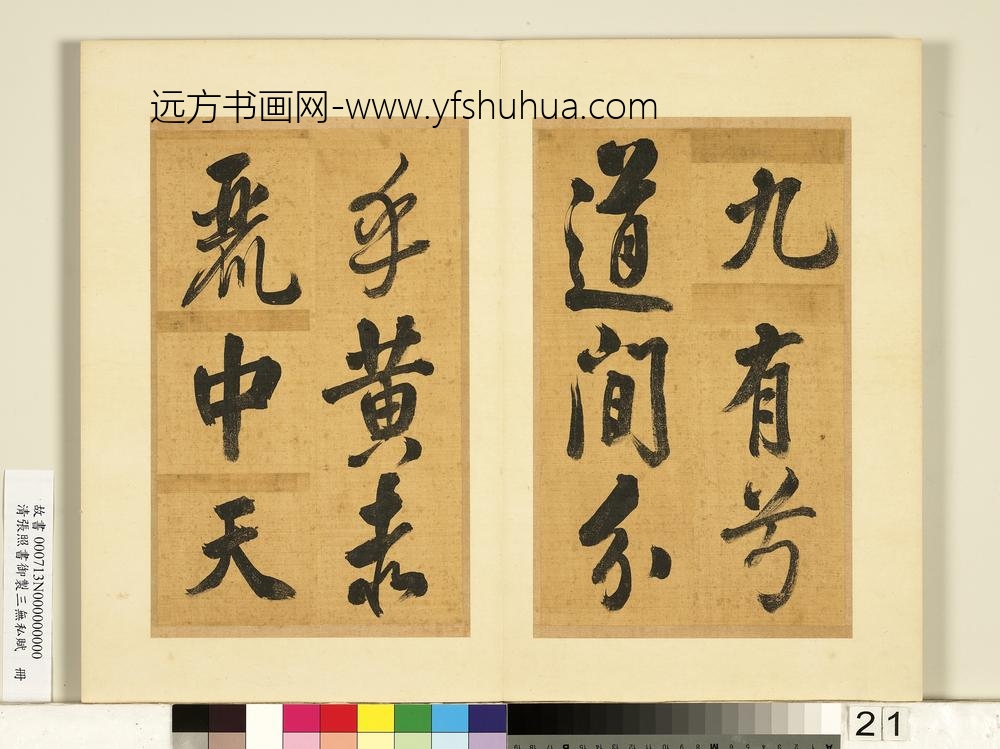 远方书画网-www.yfshuhua.com
九有兮
道間分
乎黄赤
麗中天
故書 000713N000000000
清張照書御製三無私賦 冊
21